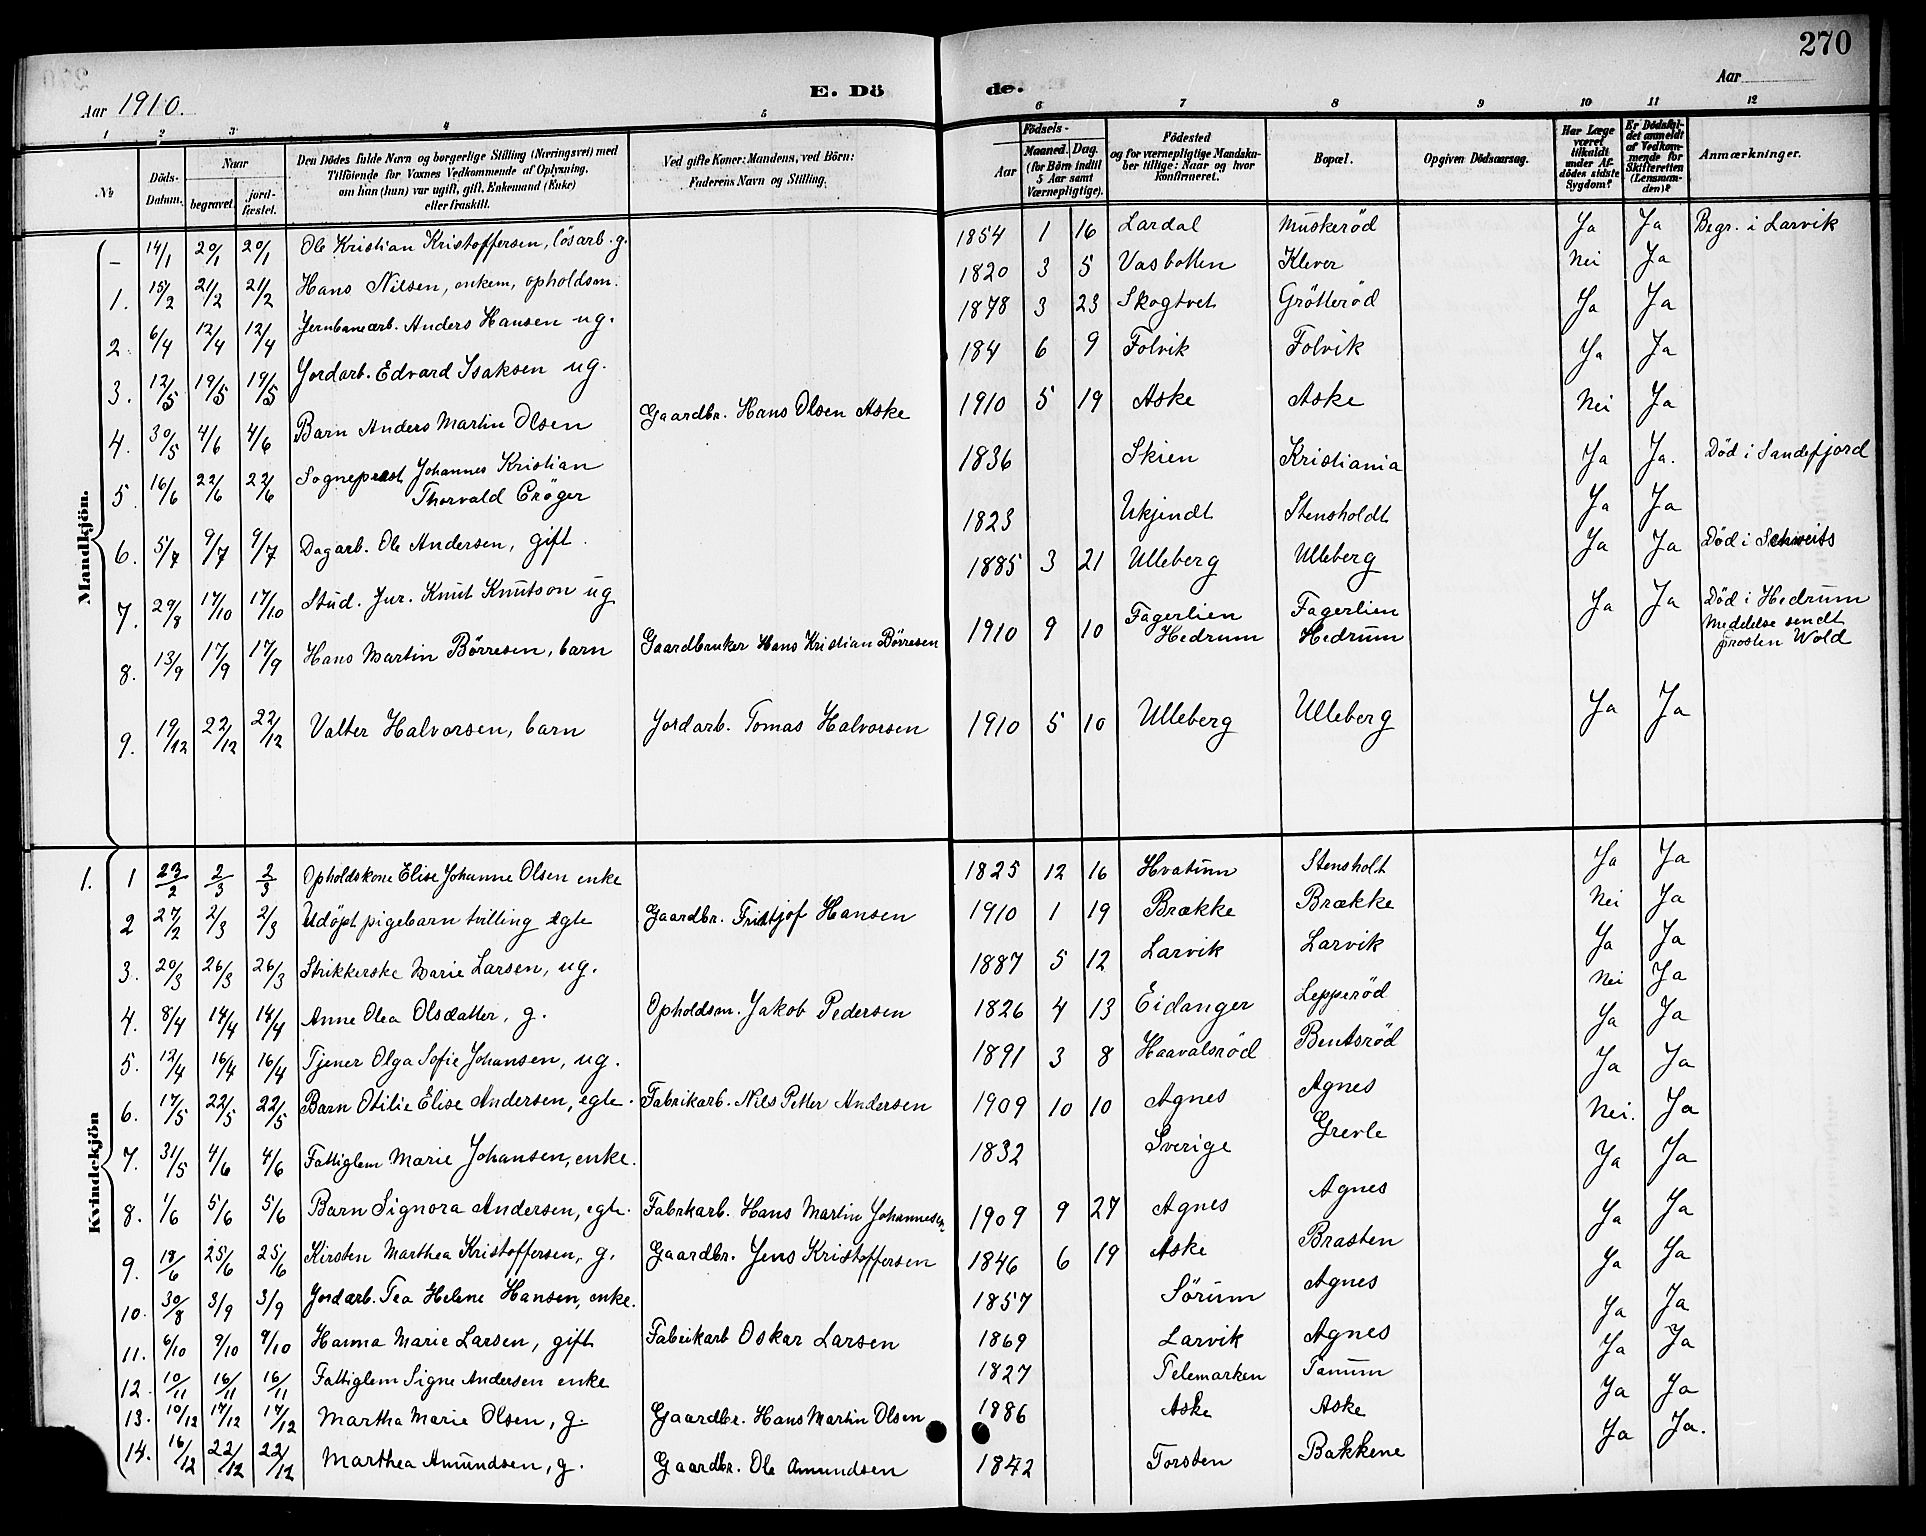 270
Aar 1910.
E. Dö de.
Aar
1 2 3 4 5 6 7 8 9 10 11 12
No
Döds-Datum.
Naar
begravet.
jord-fæstet.
Den Dödes fulde Navn og borgerlige Stilling (Næringsvei) med
Tilföiende for Voxnes Vedkommende af Oplysning,
om han (hun) var ugift, gift, Enkemand (Enke)
eller fraskilt.
Ved gifte Koner: Mandens, ved Börn:
Faderens Navn og Stilling.
Födsels-
Aar
Maaned. Dag.
(for Börn indtil
5 Aar samt
Værnepligtige).
Födested
og for værnepligtige Mandska-
ber tillige: Naar og hvor
konfirmeret.
Bopæl.
Opgiven Dödsaarsag.
Har Læge
været
tilkaldt
under Af-
dödes sidste
Sygdom?
Er Dödsfal-
det anmeldt
af Vedkom-
mende for
Skifteretten
(Lensman-
den)?
Anmærkninger.
Mandkjön.
– 14/1 20/1 20/1 Ole Kristian Kristoffersen, lösarb. g. 1854 1 16 Lardal Muskeröd Ja Ja Begr. i Larvik
1. 15/2 21/2 21/2 Hans Nilsen, enkem, opholdsm. 1820 3 5 Vasbotten Klever Nei Ja
2. 6/4 12/4 12/4 Jernbanearb. Anders Hansen ug. 1878 3 23 Skogtvet Grötteröd Ja Ja
3. 12/5 19/5 19/5 Jordarb. Edvard Isaksen ug. 184 6 9 Folvik Folvik Ja Ja
4. 30/5 4/6 4/6 Barn Anders Martin Olsen Gaardbr. Hans Olsen Aske 1910 5 19 Aske Aske Nei Ja
5 16/6 22/6 22/6 Sogneprest Johannes Kristian
Thorvald Cröger 1836 Skien Kristiania Ja Ja. Död i Sandefjord
6. 5/7 9/7 9/7 Dagarb. Ole Andersen, gift. 1823 Ukjendt Stensholdt Ja Ja
7. 29/8 17/10 17/10 Stud. Jur. Knut Knutson ug 1885 3 21 Ulleberg Ulleberg Ja Ja Död i Schweits
8. 13/9 17/9 17/9 Hans Martin Börresen, barn Gaardbruker Hans Kristian Börresen 1910 9 10 Fagerlien
Hedrum Fagerlien
Hedrum Ja Ja Död i Hedrum
Meddelse sendt
prosten Wold
9. 19/12 22/12 22/12 Valter Halvorsen, barn Jordarb. Tomas Halvorsen 1910 5 10 Ulleberg Ulleberg Ja Ja
Kvindekjön
1. 1 23/2 2/3 2/3 Opholdskone Elise Johanne Olsen enke 1825 12 16 Hvatum Stensholt Ja Ja
2 27/2 2/3 2/3 Udöpt pigebarn tvilling egte Gaardbr. Fritjof Hansen 1910 1 19 Brække Brække Nei Ja
3. 20/3 26/3 26/3 Strikkerske Marie Larsen, ug. 1887 5 12 Larvik Larvik Ja Ja
4. 8/4 14/4 14/4 Anne Olea Olsdatter, g. Opholdsm. Jakob Pedersen 1826 4 13 Eidanger Lepperöd Nei Ja
5. 12/4 16/4 16/4 Tjener Olga Sofie Johansen, ug. 1891 3 8 Haavalsröd Bentsröd Ja Ja
6. 17/5 22/5 22/5 Barn Otilie Elise Andersen, egte. Fabrikarb. Nils Petter Andersen 1909 10 10 Agnes Agnes Ja Ja
7. 31/5 4/6 4/6 Fattiglem Marie Johansen, enke. 1832 Sverige Grevle Nei. Ja
8. 1/6 5/6 5/6 Barn Signora Andersen, egte. Fabrikarb. Hans Martin Johannesen 1909 9 27 Agnes Agnes Ja Ja
9. 18/6 25/6 25/6 Kirsten Marthea Kristoffersen, g. Gaardbr. Jens Kristoffersen 1846 6 19 Aske Brasten Ja Ja
10. 30/8 3/9 3/9 Jordarb. Tea Helene Hansen, enke. 1857 Sörum Agnes Ja Ja
11. 6/10 9/10 9/10 Hanna Marie Larsen, gift Fabrikarb Oskar Larsen 1869 Larvik Agnes Ja Ja
12. 10/11 16/11 16/11 Fattiglem Signe Andersen enke 1827 Telemarken Tanum Ja Ja
13. 10/12 17/12 17/12 Martha Marie Olsen, g. Gaardbr. Hans Martin Olsen 1886 Aske Aske Ja Ja
14. 16/12 22/12 22/12 Marthea Amundsen, g. Gaardbr. Ole Amundsen 1842 Torsten Bakkene Ja Ja.